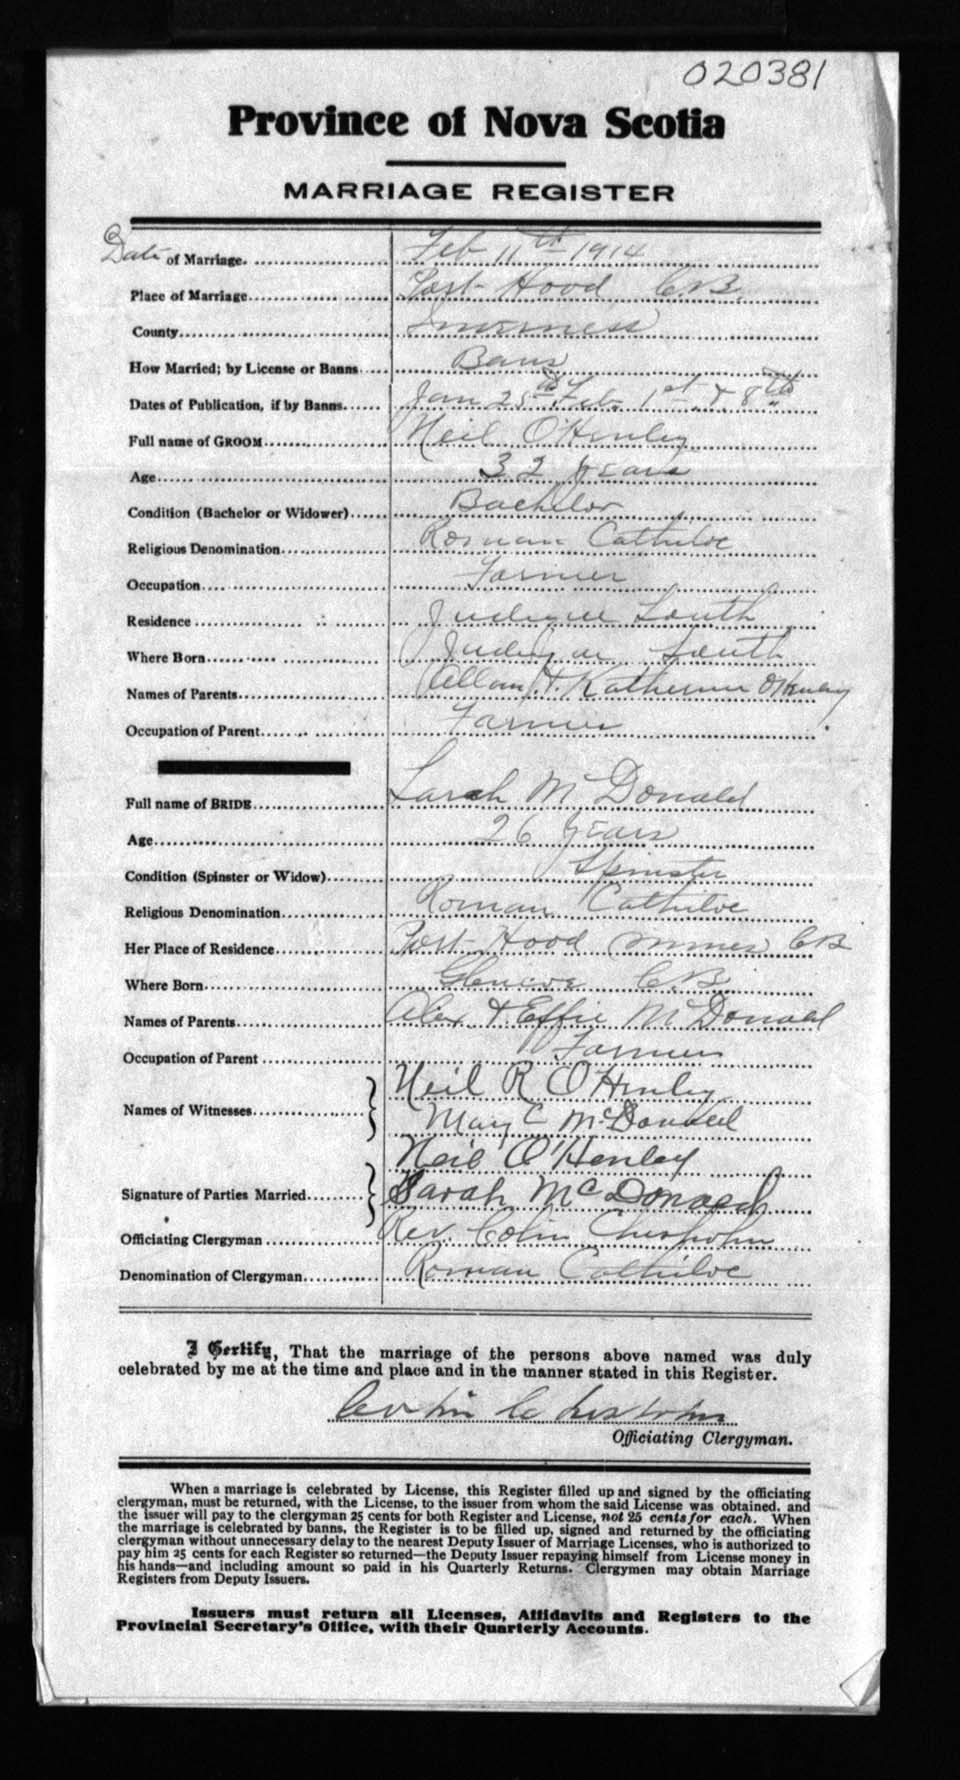 020381
Province of Nova Scotia
MARRIAGE REGISTER
Date of Marriage. Feb 11th 1914
Place of Marriage Port Hood C.B.
County Inverness
How Married; by License or Banns Bans
Dates of Publication, if by Banns Jan 25th Feb. 1st & 8th
Full name of GROOM Neil O'Henley
Age 32 years
Condition (Bachelor or Widower) Bachelor
Religious Denomination Roman Catholic
Occupation Farmer
Residence Judique South
Where Born Judique South
Names of Parents Allan & Katherine O'Henley
Occupation of Parent Farmer
Full name of BRIDE Sarah McDonald
Age 26 years
Condition (Spinster or Widow) Spinster
Religious Denomination Roman Catholic
Her Place of Residence Port Hood Mines CB
Where Born Glencoe C.B.
Names of Parents Alex & Effie McDonald
Occupation of Parent Farmer
Names of Witnesses Neil R O'Henley
Mary C McDonald
Neil O'Henley
Signature of Parties Married Sarah McDonald
Officiating Clergyman Rev. Colin Chisholm
Denomination of Clergyman Roman Catholic
I Certify, That the marriage of the persons above named was duly
celebrated by me at the time and place and in the manner stated in this Register.
Colin Chisholm
Officiating Clergyman.
When a marriage is celebrated by License, this Register filled up and signed by the officiating
clergyman, must be returned, with the License, to the issuer from whom the said License was obtained, and
the issuer will pay to the clergyman 25 cents for both Register and License, not 25 cents for each. When
the marriage is celebrated by banns, the Register is to be filled up, signed and returned by the officiating
clergyman without unnecessary delay to the nearest Deputy Issuer of Marriage Licenses, who is authorized to
pay him 25 cents for each Register so returned—the Deputy Issuer repaying himself from License money in
his hands—and including amount so paid in his Quarterly Returns. Clergymen may obtain Marriage
Registers from Deputy Issuers.
Issuers must return all Licenses, Affidavits and Registers to the
Provincial Secretary's Office, with their Quarterly Accounts.